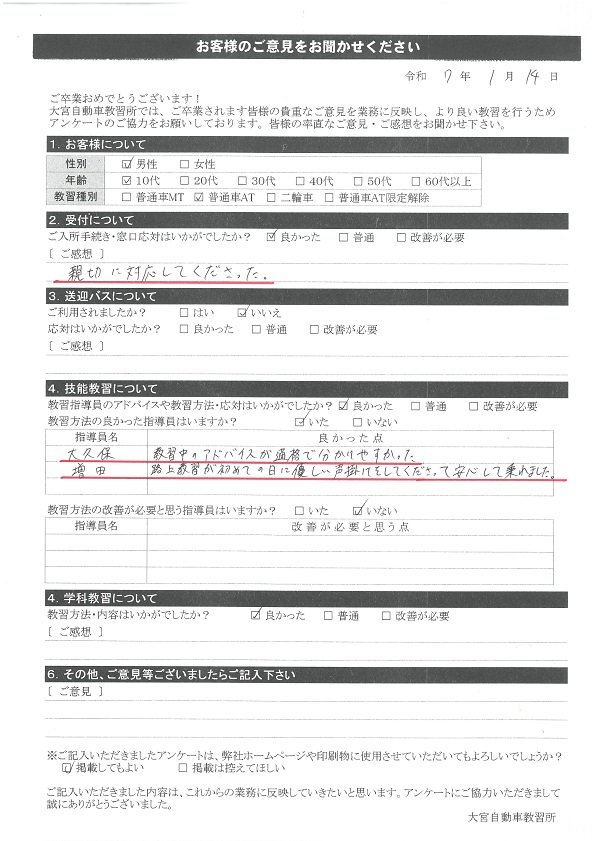 お客様のご意見をお聞かせください
令和 7 年 1 月 14 日
ご卒業おめでとうございます！
大宮自動車教習所では、ご卒業されます皆様の貴重なご意見を業務に反映し、より良い教習を行うため
アンケートのご協力をお願いしております。皆様の率直なご意見・ご感想をお聞かせ下さい。
1. お客様について
性別 ☑男性 □女性
年齢 ☑10代 □20代 □30代 □40代 □50代 □60代以上
教習種別 □普通車MT ☑普通車AT □二輪車 □普通車AT限定解除
2. 受付について
ご入所手続き・窓口応対はいかがでしたか？ ☑良かった □普通 □改善が必要
［ご感想］
親切に対応してくださった。
3. 送迎バスについて
ご利用されましたか？ □はい ☑いいえ
応対はいかがでしたか？ □良かった □普通 □改善が必要
［ご感想］
4. 技能教習について
教習指導員のアドバイスや教習方法・応対はいかがでしたか？ ☑良かった □普通 □改善が必要
教習方法の良かった指導員はいますか？ ☑いた □いない
指導員名 良かった点
大久保 教習中のアドバイスが適格で分かりやすかった
増田 路上教習が初めての日に優しい声掛けをしてくださって安心して乗れました。
教習方法の改善が必要と思う指導員はいますか？ □いた ☑いない
指導員名 改善が必要と思う点
4. 学科教習について
教習方法・内容はいかがでしたか？ ☑良かった □普通 □改善が必要
［ご感想］
6. その他、ご意見等ございましたらご記入下さい
［ご意見］
※ご記入いただきましたアンケートは、弊社ホームページや印刷物に使用させていただいてもよろしいでしょうか？
☑掲載してもよい □掲載は控えてほしい
ご記入いただきました内容は、これからの業務に反映していきたいと思います。アンケートにご協力いただきまして
誠にありがとうございました。
大宮自動車教習所